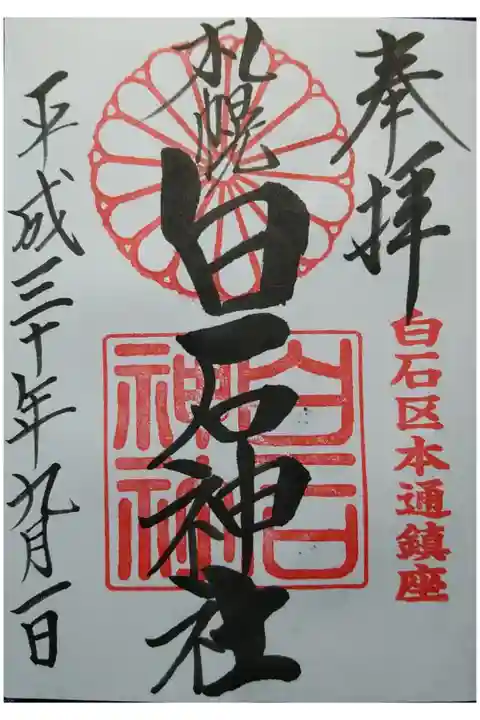 奉拝
白石区本通鎮座
札幌
白石神社
白石神社
平成三十年九月一日